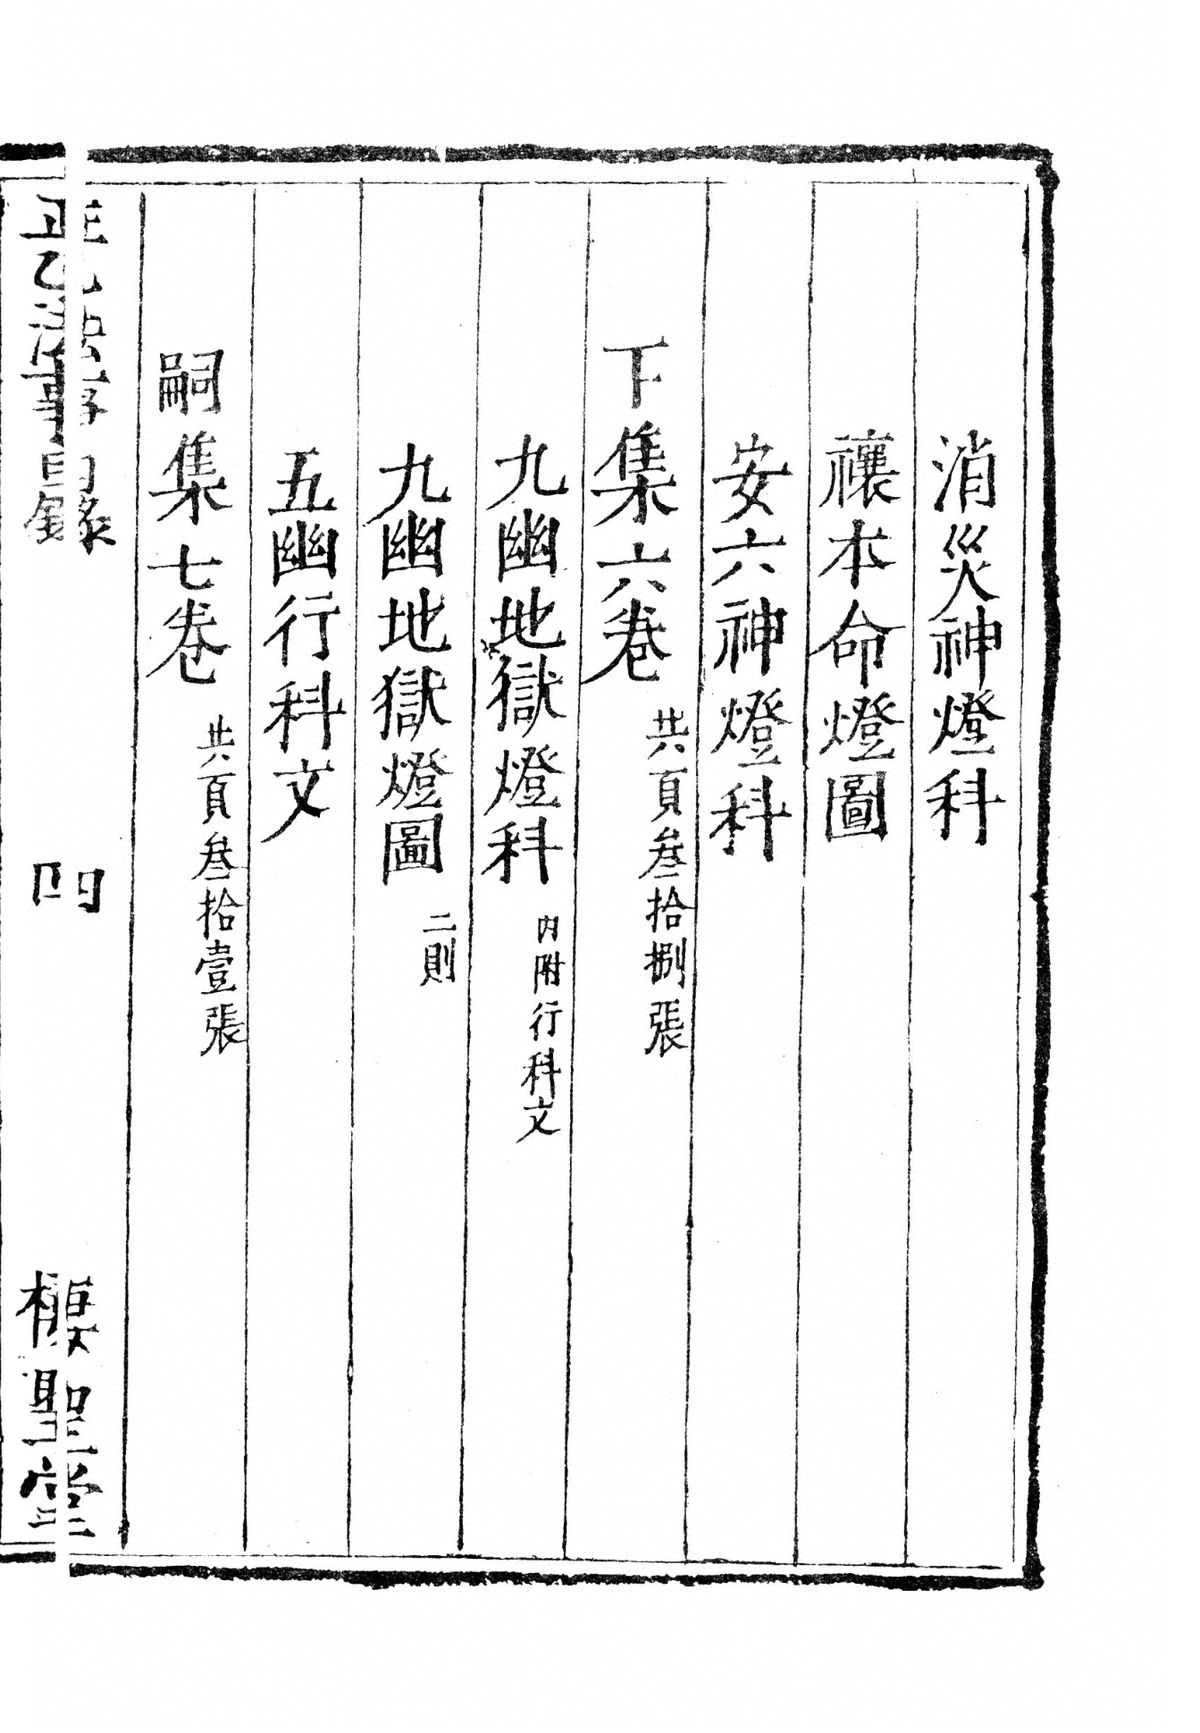 消災神燈科
禳本命燈圖
安六神燈科
下集六卷 共頁叁拾捌張
九幽地獄燈科 內附行科文
九幽地獄燈圖 二則
五幽行科文
嗣集七卷 共頁叁拾壹張
正乙法事目錄 四 樓聖堂